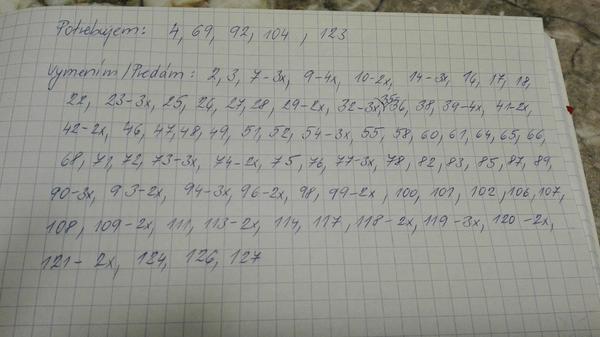 Potrebujem: 4, 69, 92, 104, 123
Vymením/Predám: 2, 3, 7-3x, 9-4x, 10-2x, 14-3x, 16, 17, 18,
22, 23-3x, 25, 26, 27, 28, 29-2x, 32-3x, 35, 36, 38, 39-4x, 41-2x,
42-2x, 46, 47, 48, 49, 51, 52, 54-3x, 55, 58, 60, 61, 64, 65, 66,
68, 71, 72, 73-3x, 74-2x, 75, 76, 77-3x, 78, 82, 83, 85, 87, 89,
90-3x, 93-2x, 94-3x, 96-2x, 98, 99-2x, 100, 101, 102, 106, 107,
108, 109-2x, 111, 113-2x, 114, 117, 118-2x, 119-3x, 120-2x,
121-2x, 124, 126, 127